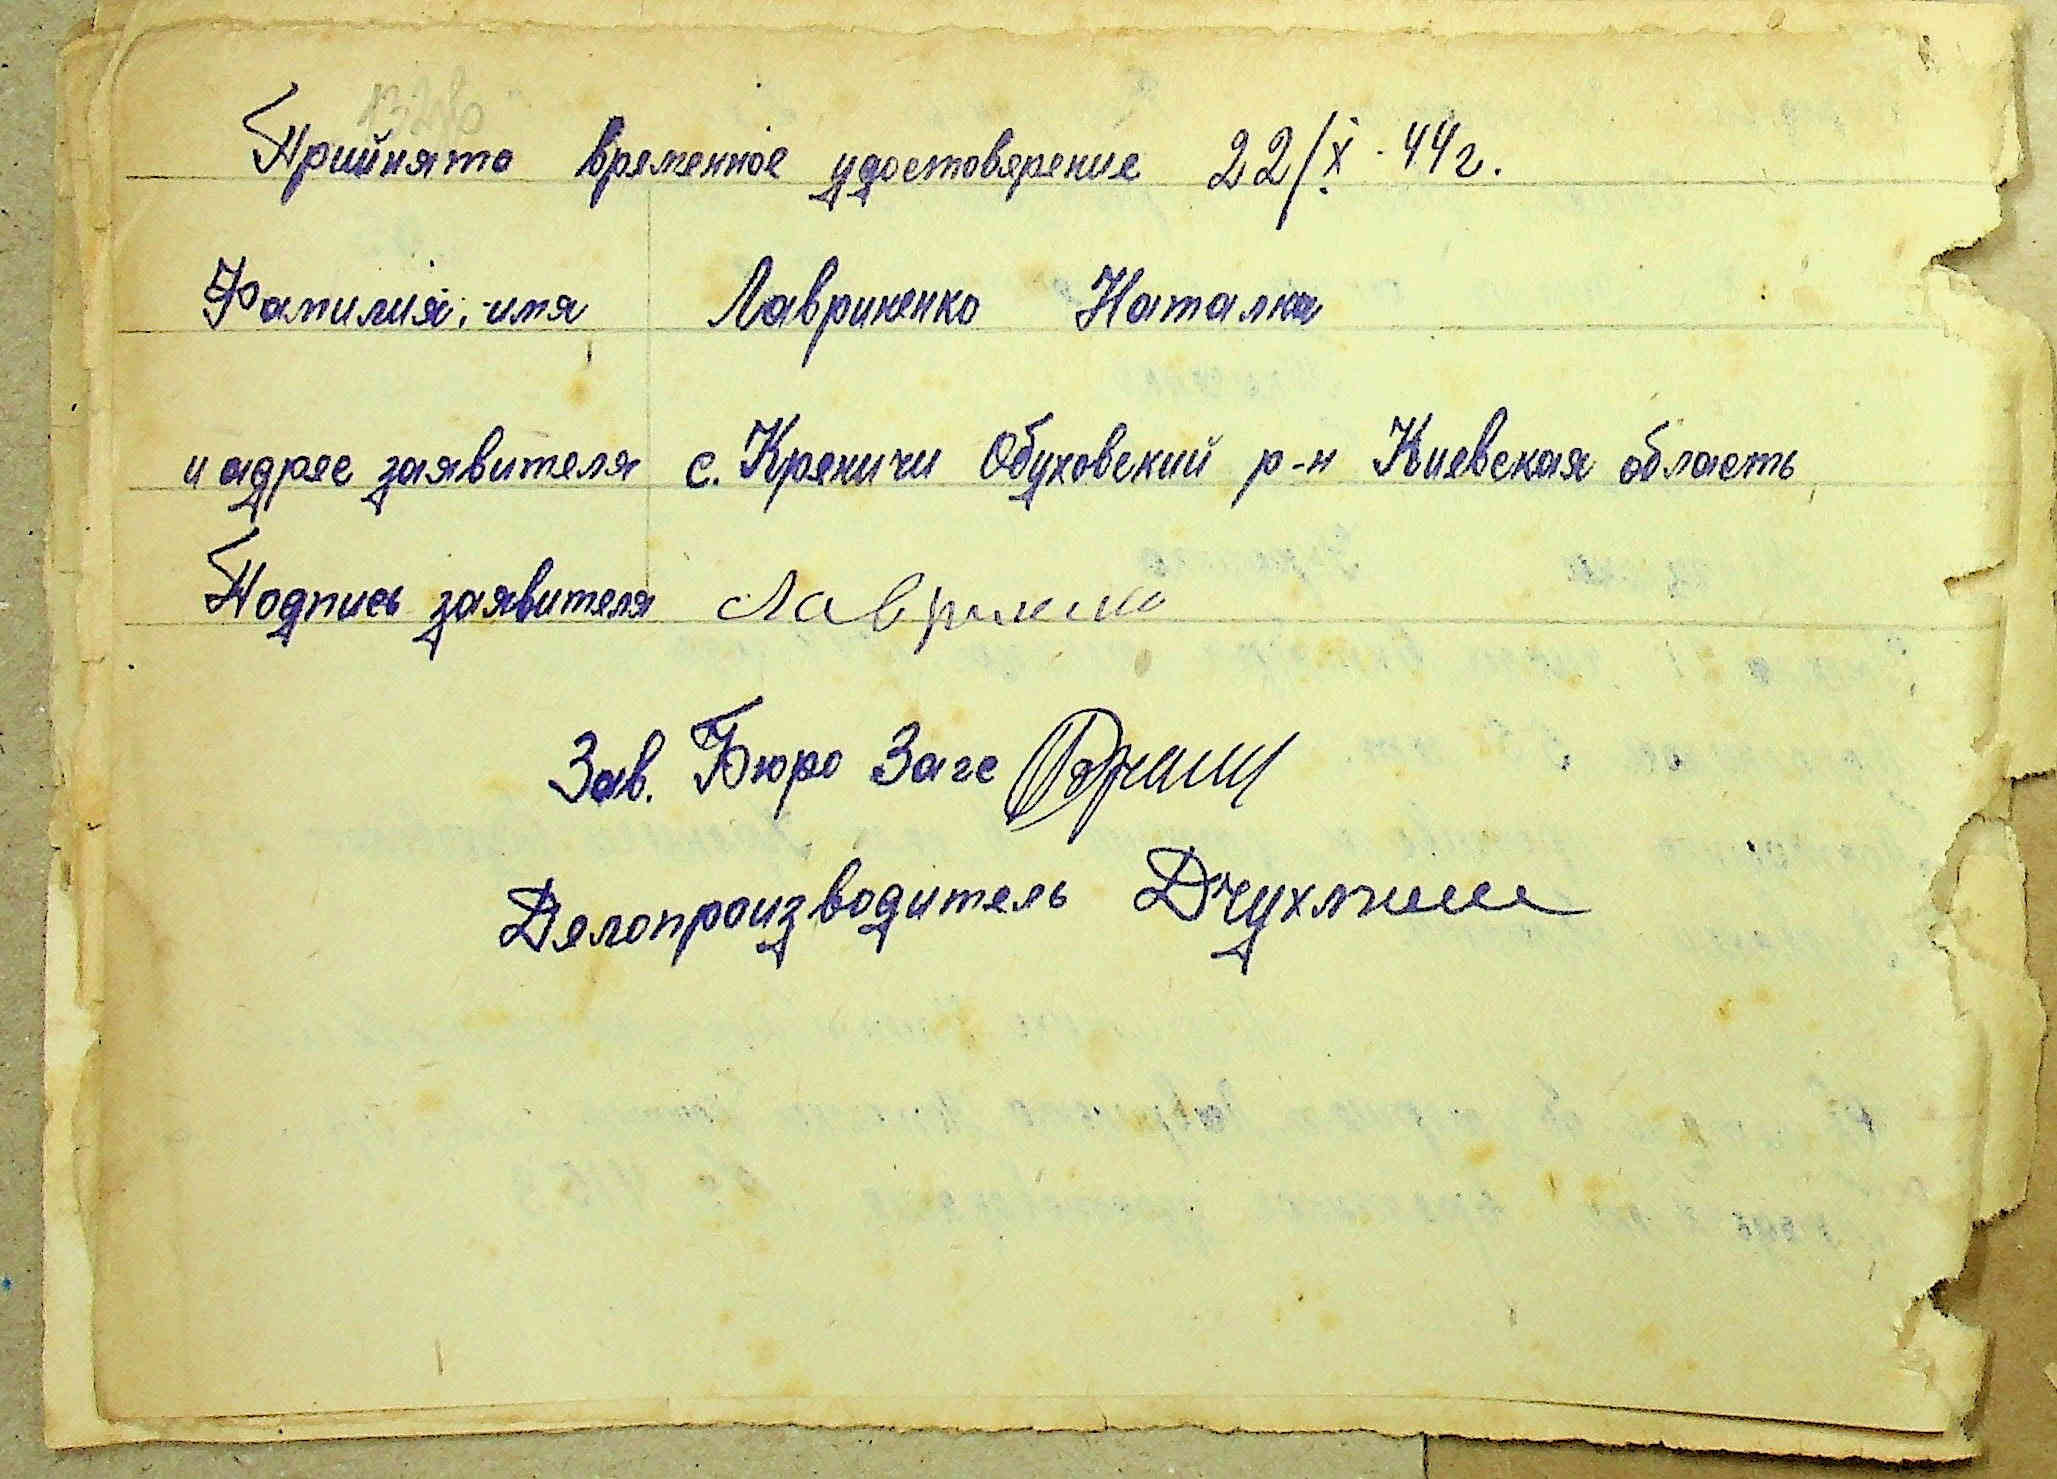 Прийнято временное удостоверение 22/X - 44 г.
Фамилия, имя Лавриненко Наталка
и адрес заявителя с. Креничи Обуховский р-н Киевская область
Подпись заявителя Лавриненко
Зав. Бюро Загс
Делопроизводитель